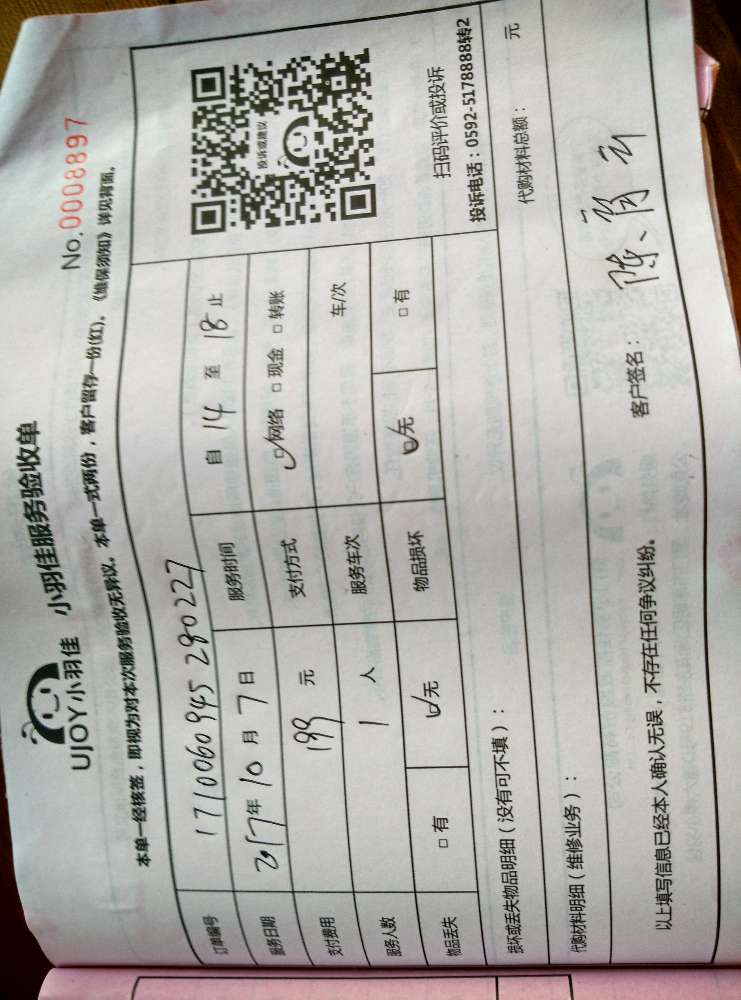 UJOY小羽佳 小羽佳服务验收单
No.0008897
本单一经核签，即视为对本次服务验收无异议。本单一式两份，客户留存一份(红)。《维保须知》详见背面。
订单编号 1710060945280227
服务日期 2017年10月7日 服务时间 自14至18止
支付费用 199元 支付方式 网络 现金 转账
服务人数 1人 服务车次 车/次
物品丢失 有 无 物品损坏 无 有
投诉或建议
扫码评价或投诉
投诉电话：0592-5178888转2
损坏或丢失物品明细（没有可不填）：
代购材料明细（维修业务）： 代购材料总额： 元
以上填写信息已经本人确认无误，不存在任何争议纠纷。 客户签名：